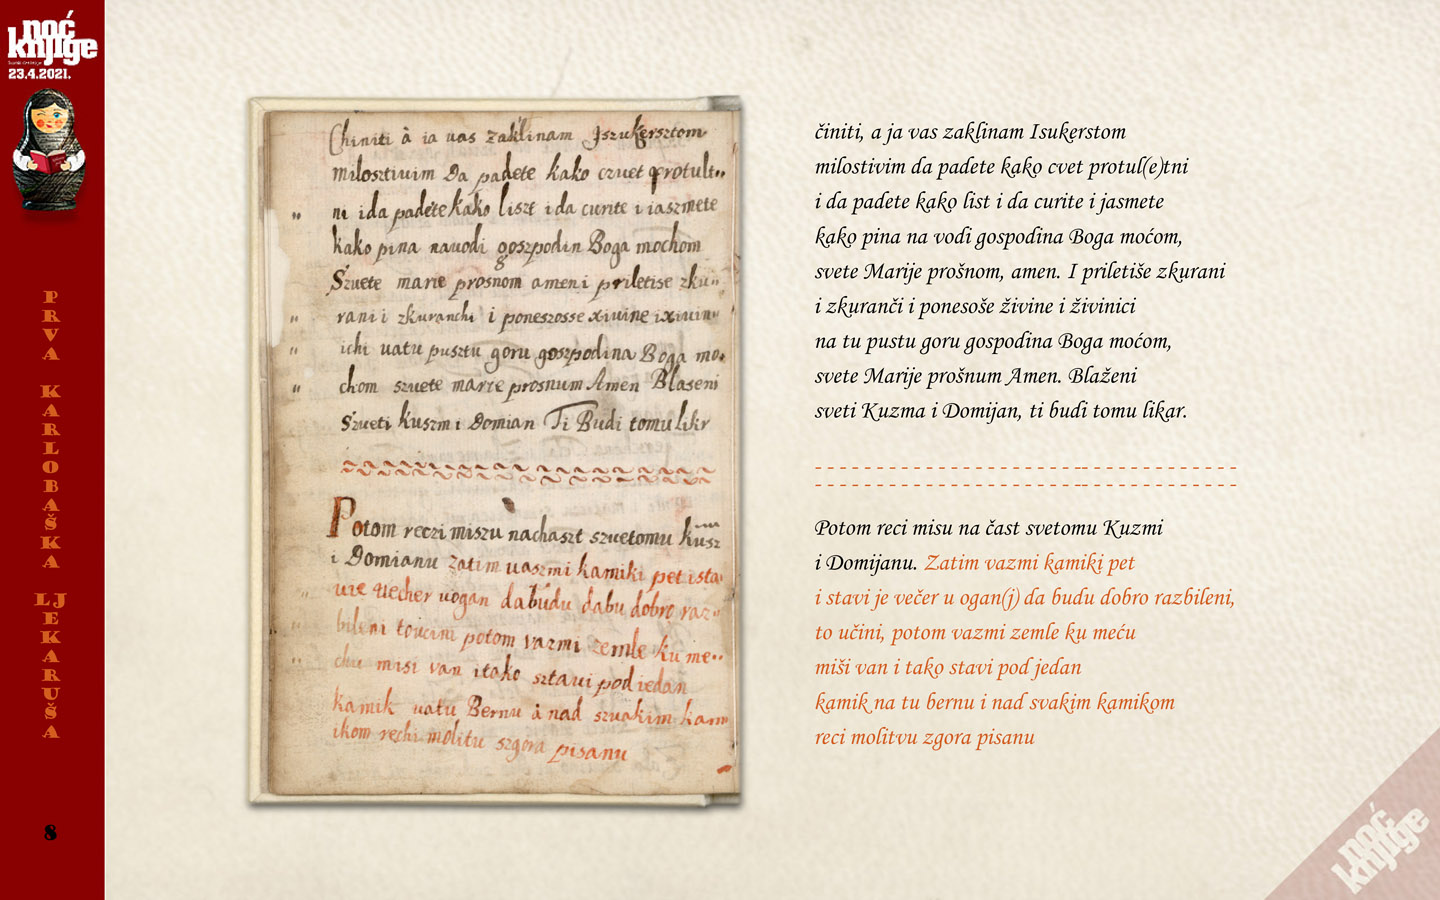 noć
knjige
23.4.2021.
PRVA KARLOBAŠKA LJEKARUŠA
8
Chiniti à ia uas zaklinam Iszukersztom
milosztiuim Da padete kako czuet protult„
ni i da padete kako liszt i da curite i iaszmete
kako pina nauodi goszpodin Boga mochom
Szuete marie prosnom amen i priletise zku„
rani i zkuranchi i poneszosse xiuine i xiuin„
ichi uatu pusztu goru goszpodina Boga mo„
chom szuete marie prosnum Amen Blaseni
Szueti kuszm i Domian Ti Budi tomu likr
Potom reczi miszu nachaszt szuetomu kusz
i Domianu zatim uaszmi kamiki pet i sta
uie uecher uogan dabudu dabu dobro raz„
bileni toucini potom vazmi zemle ku me„
chu misi van i tako sztaui pod iedan
kamik uatu Bernu à nad szuakim kam
ikom rechi molitu szgora pisanu
činiti, a ja vas zaklinam Isukerstom
milostivim da padete kako cvet protul(e)tni
i da padete kako list i da curite i jasmete
kako pina na vodi gospodina Boga moćom,
svete Marije prošnom, amen. I priletiše zkurani
i zkuranči i ponesoše živine i živinici
na tu pustu goru gospodina Boga moćom,
svete Marije prošnum Amen. Blaženi
sveti Kuzma i Domijan, ti budi tomu likar.
Potom reci misu na čast svetomu Kuzmi
i Domijanu. Zatim vazmi kamiki pet
i stavi je večer u ogan(j) da budu dobro razbileni,
to učini, potom vazmi zemle ku meću
miši van i tako stavi pod jedan
kamik na tu bernu i nad svakim kamikom
reci molitvu zgora pisanu
noć
knjige